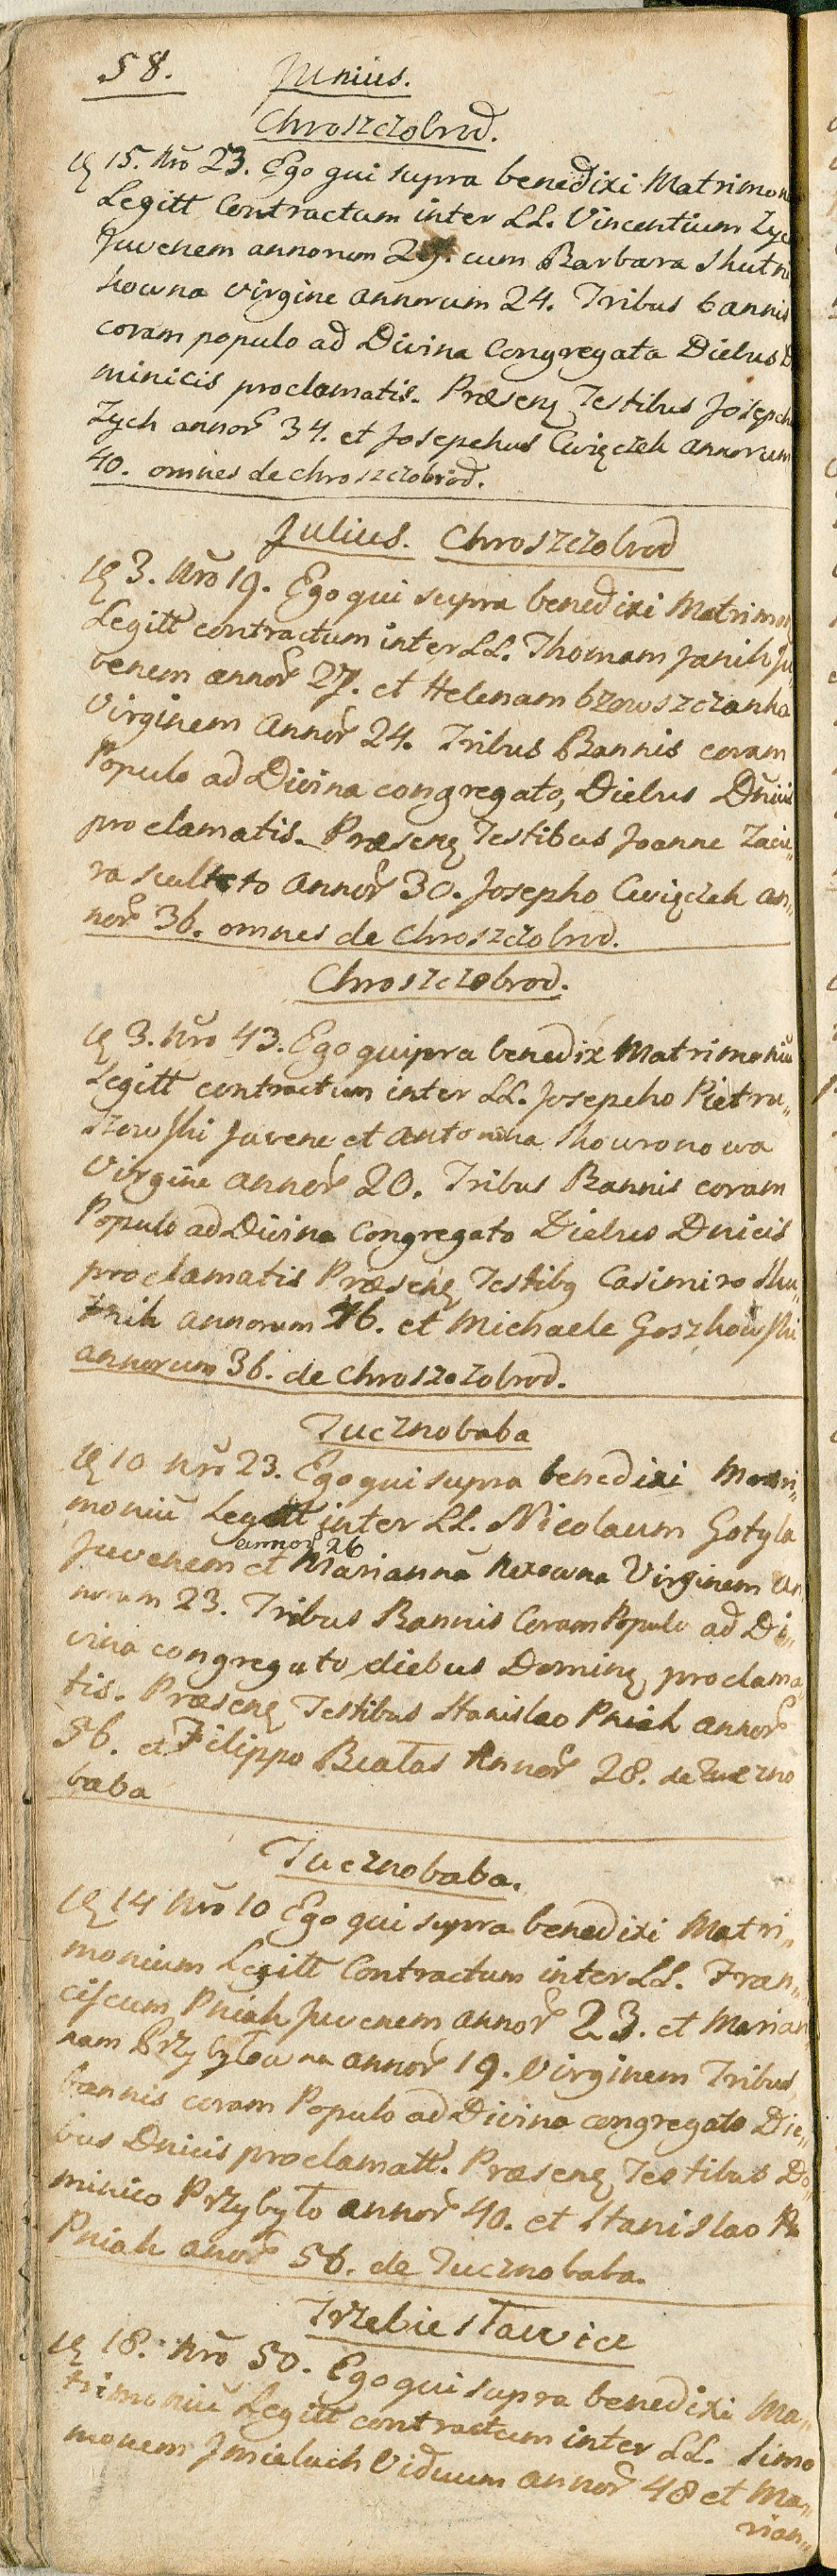 58. Junius.
Chroszczobrod.
15. Nro 23. Ego qui supra benedixi Matrimon
Legitt Contractum inter LL. Vincentium Zyc
Juvenem annorum cum Barbara Skutni
kowna virgine annorum 24. Tribus bannis
coram populo ad Divina Congregata Diebus D
minicis proclamatis. Præsenq Testibus Joseph
Zych annor 34. et Josephus Cwięczek annorum
40. omnes de Chroszczobrod.
Julius. Chroszczobrod
3. Nro 19. Ego qui supra benedixi Matrimon
Legitt contractum inter LL. Thomam Janik Ju
venem annor 27. et Helenam brzowszczanka
Virginem annor 24. Tribus Bannis coram
Populo ad Divina congregato, Diebus Dnicis
proclamatis. Præsenq Testibus Joanne Zaciu„
ra sculteto annor 30. Josepho Cwięczek an„
nor 36. omnes de Chroszczobrod.
Chroszczobrod.
3. Nro 43. Ego quipra benedix Matrimoniu
Legitt contractum inter LL. Josepho Pietru„
szowski Juvene et Antonina Skowronowa
Virgine annor 20. Tribus Bannis coram
Populo ad Divina Congregato Diebus Dnicis
proclamatis Præsenq Testibq Casimiro Sku„
tnik annorum 46. et Michaele Goszkowski
annorum 36. de Chroszczobrod.
Tucznobaba
10 Nro 23. Ego qui supra benedixi Matri„
moniu Legitt inter LL. Nicolaum Gotyla
annor 26
Juvenem et Marianna Virginem an
norum 23. Tribus Bannis Coram Populo ad Di„
vina congregato diebus Dominq proclama
tis. Præsenq Testibus Stanislao Pniak annor
56. et Filippo Białas Annor 28. de Tuczno
baba
Tucznobaba.
14 Nro 10 Ego qui supra benedixi Matri„
monium Legitt Contractum inter LL. Fran„
ciscum Pniak Juvenem annor 23. et Marian
nam Przybyłowna annor 19. Virginem Tribus
bannis coram Populo ad Divina congregato Die„
bus Dnicis proclamatt. Præsenq Testibus Do„
minico Przybyło annor 40. et Stanislao
Pniak anor 56. de Tucznobaba.
Trzebiesławice
18. Nro 50. Ego qui supra benedixi Ma„
trimoniu Legitt contractum inter LL. Simo
monem Jmieluch Viduum annor 48 et Ma„
rian„